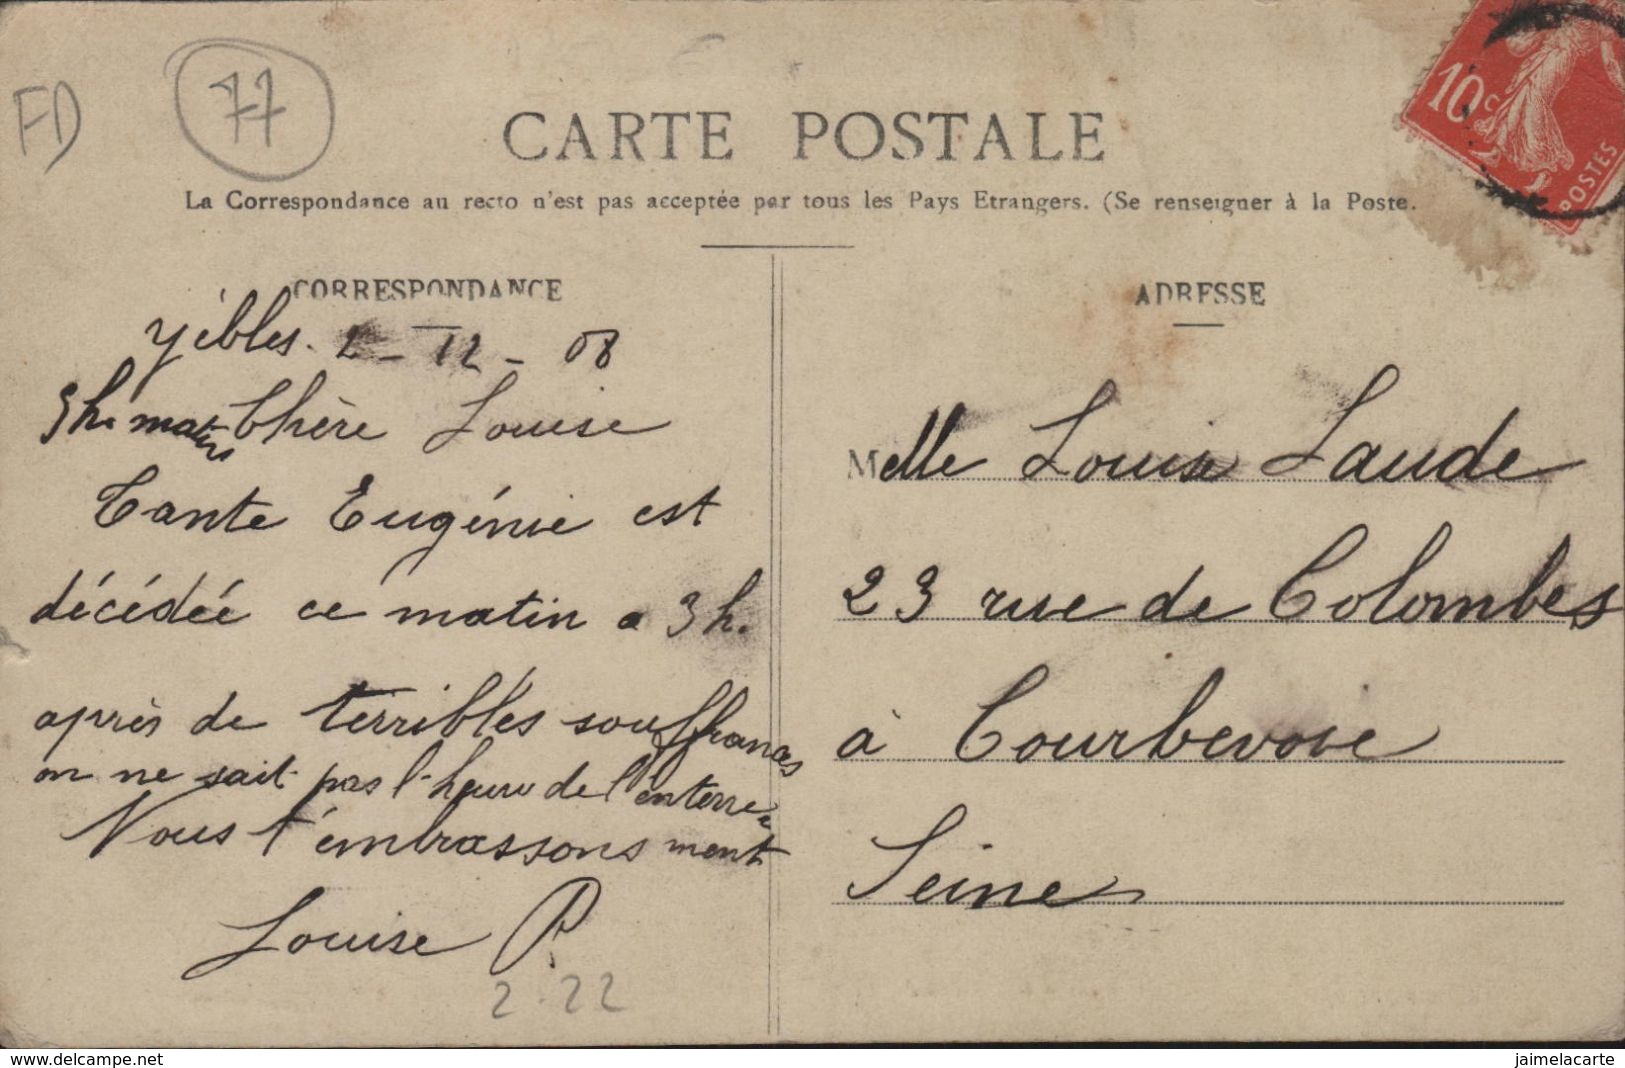 FD
77
CARTE POSTALE
10c
POSTES
La Correspondance au recto n'est pas acceptée par tous les Pays Etrangers. (Se renseigner à la Poste.
CORRESPONDANCE
Yèbles. 2 - 12 - 08
9h. matin Chère Louise
Tante Eugénie est
décédée ce matin a 3 h.
après de terribles souffrances
on ne sait pas l'heure de l'enterre-
Nous t'embrassons ment
Louise P
2.22
ADRESSE
Melle Louise Laude
23 rue de Colombes
à Courbevoie
Seine
www.delcampe.net
jaimelacarte